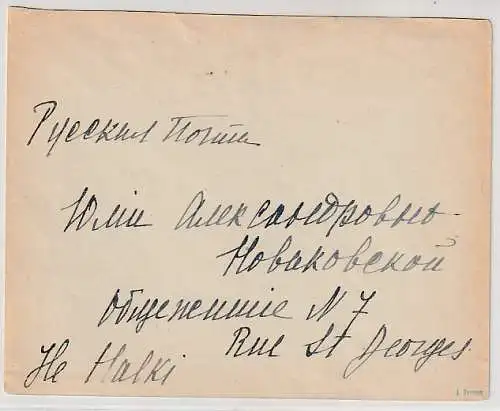 Русская Почта
Юліи Александровнѣ
Новаковской
Общежитіе N 7
Rue St Georges
Ile Halki